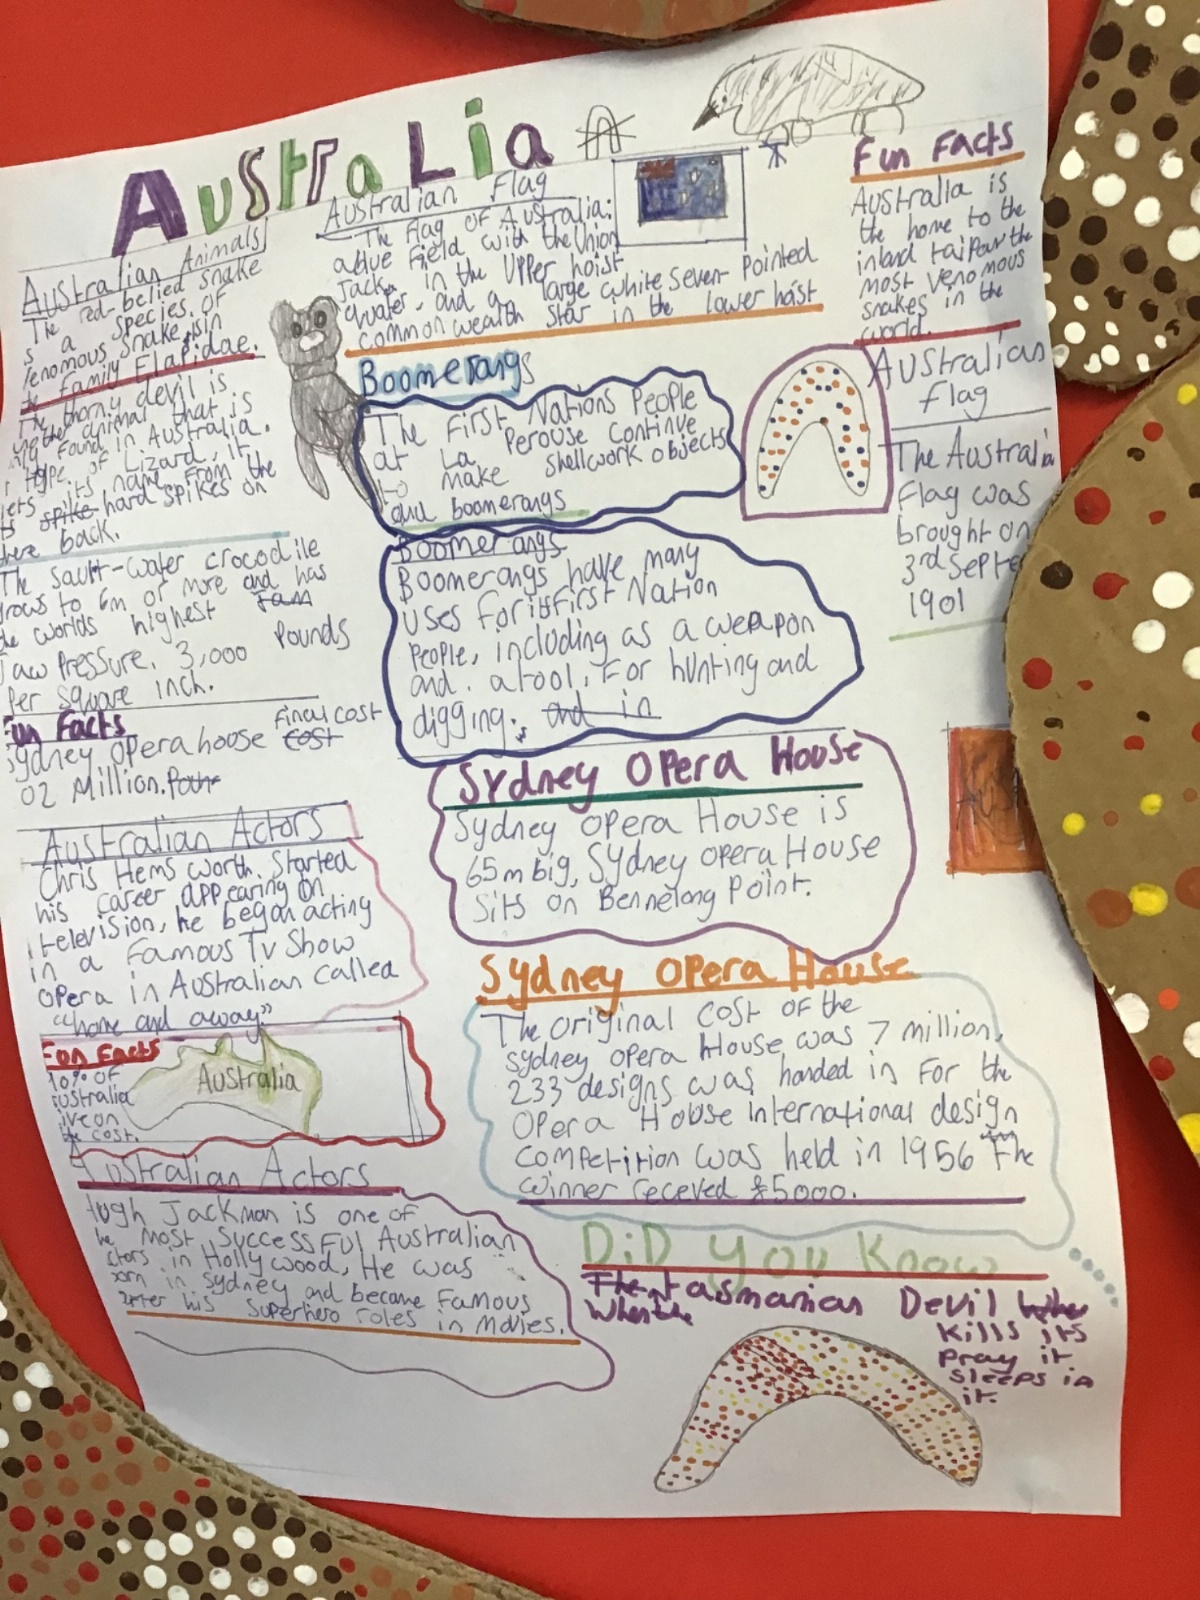 AUSTRALIA
Australian Animals
The red-belied snake
is a species of
venomous snake, is in
the family Elapidae.
The thorny devil is
the animal that is
only found in Australia.
type of Lizard, it
gets its name from the
its spike hard spikes on
there back.
The sault-water crocodile
grows to 6m or more and has
the worlds highest Jam
Jaw Pressure. 3,000 Pounds
Per square inch.
Fun Facts
Sydney opera house Final cost
cost
02 Million.
Australian Actors
Chris Hems worth. Started
his career appearing on
television, he began acting
in a Famous Tv Show
opera in Australian called
"home and away"
Fun Facts
10% of
australia
live on
the cost.
Australia
Australian Actors
Hugh Jackman is one of
the most successful Australian
actors in Hollywood, He was
born in sydney and became famous
after his superhero roles in Movies.
Australian Flag
The Flag of Australia:
a blue Field with the Union
Jack, in the upper hoist
quater, and a large white seven pointed
common wealth star in the lower hoist
Boomerangs
The First Nations People
at La Perouse Continue
to make shellwork objects
and boomerangs
Boomerangs
Boomerangs have many
uses For its First Nation
People, including as a weapon
and. a tool, For hunting and
digging. and in
Sydney Opera House
Sydney opera House is
65m big, Sydney opera House
Sits on Bennelong Point.
Sydney Opera House
The original cost of the
sydney opera House was 7 million,
233 designs was handed in For the
opera House International design
competition was held in 1956 The
winner receved £5000.
DiD you Know
The tasmanian Devil
When the
kills its
pray it
sleeps in
it.
Fun Facts
Australia is
the home to the
inland taipan the
most venomous
snakes in the
world.
Australian
flag
The Australia
Flag was
brought on
3rd Septe
1901